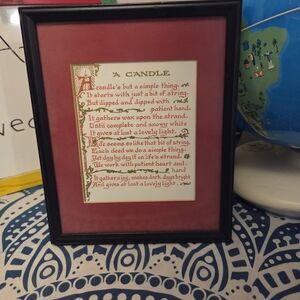 A CANDLE
A candle's but a simple thing.
It starts with just a bit of string.
But dipped and dipped with
patient hand.
It gathers wax upon the strand.
Until complete and snowy white
It gives at last a lovely light.
Life seems so like that bit of string.
Each deed we do a simple thing.
Yet day by day if on life's strand.
We work with patient heart and
hand
It gathers joy, makes dark days bright
And gives at last a lovely light.